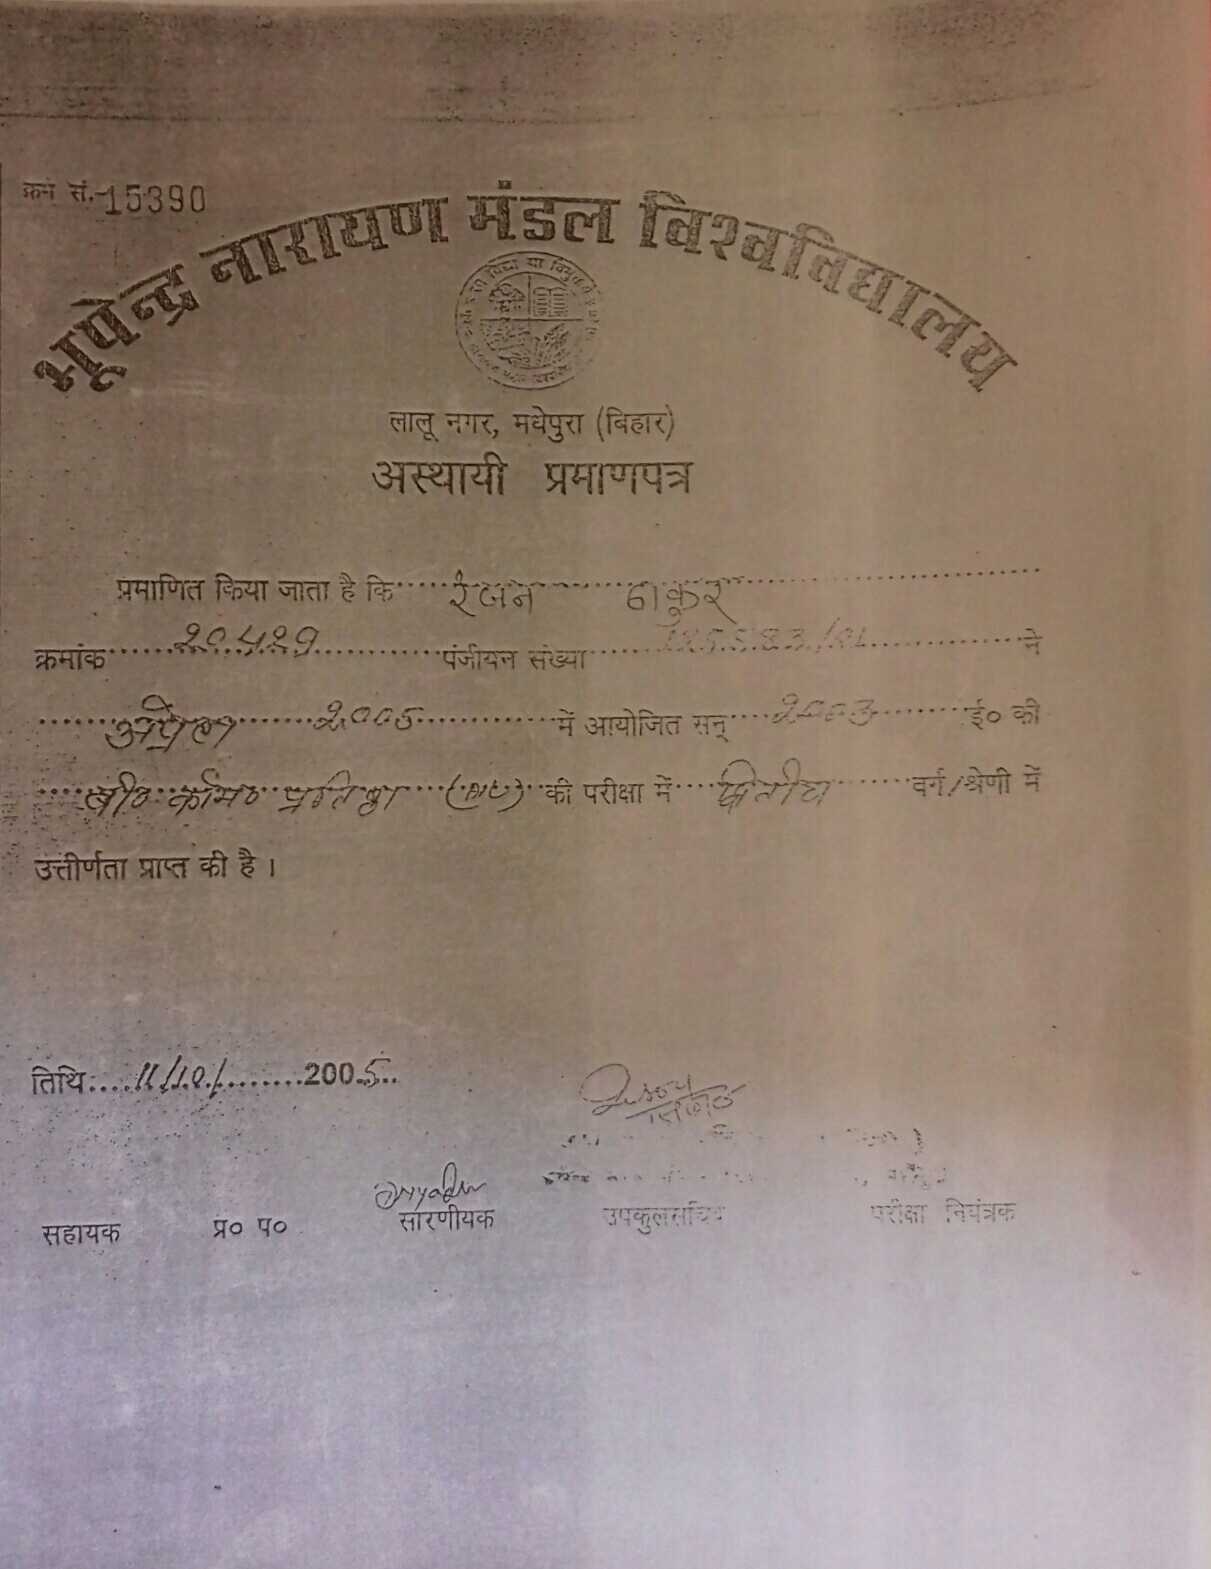 क्रम सं.-15390
भूपेन्द्र नारायण मंडल विश्वविद्यालय
लालू नगर, मधेपुरा (बिहार)
अस्थायी प्रमाणपत्र
प्रमाणित किया जाता है कि रंजन ठाकुर
क्रमांक पंजीयन संख्या ने
अप्रैल 2005 में आयोजित सन् 2003 ई० की
बी० कॉम० प्रतिष्ठा की परीक्षा में द्वितीय वर्ग/श्रेणी में
उत्तीर्णता प्राप्त की है ।
तिथि 2005
सहायक प्र० प० सारणीयक उपकुलसचिव परीक्षा नियंत्रक